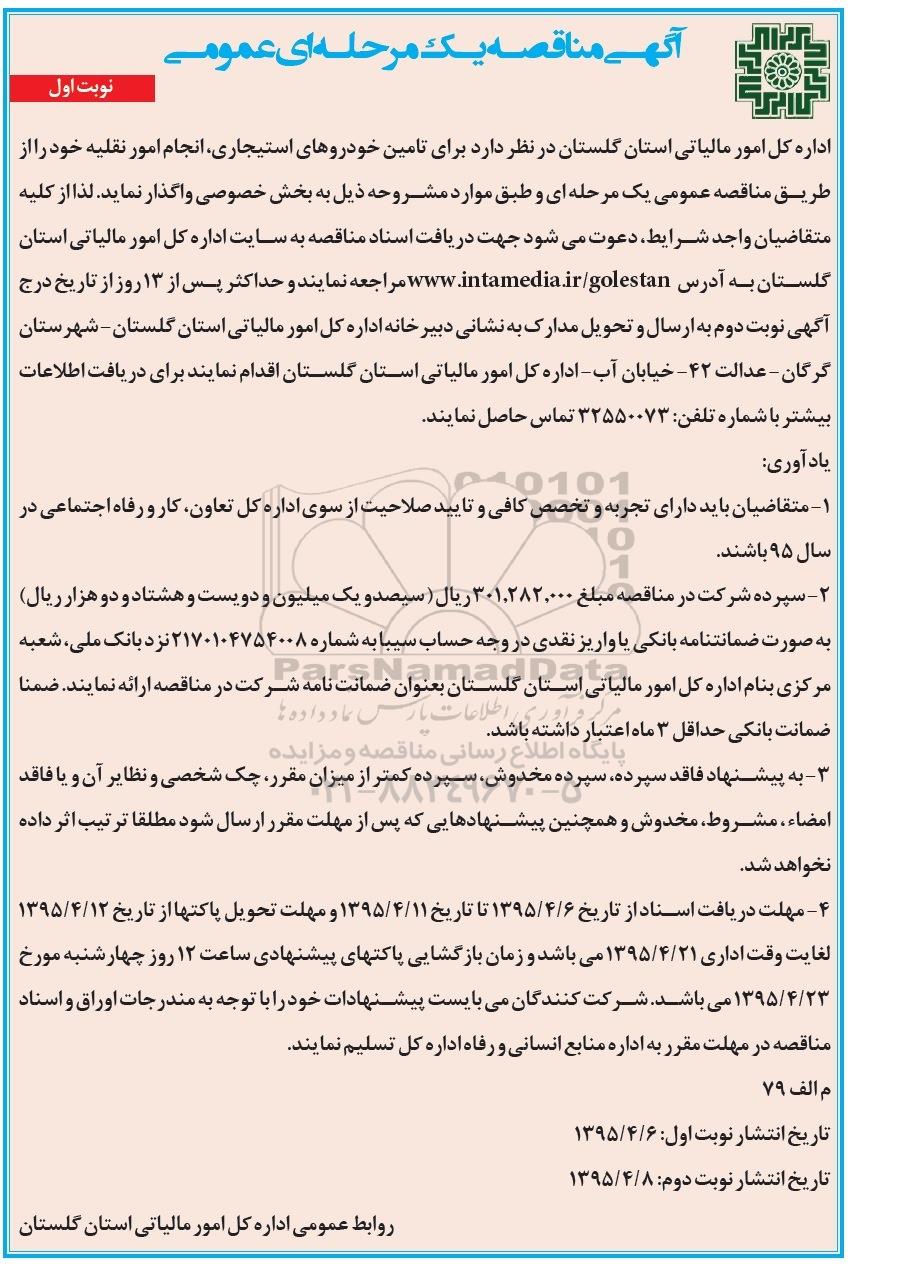 آگهی مناقصه یک مرحله ای عمومی
نوبت اول
اداره کل امور مالیاتی استان گلستان در نظر دارد برای تامین خودروهای استیجاری، انجام امور نقلیه خود را از
طریق مناقصه عمومی یک مرحله ای و طبق موارد مشروحه ذیل به بخش خصوصی واگذار نماید. لذا از کلیه
متقاضیان واجد شرایط، دعوت می شود جهت دریافت اسناد مناقصه به سایت اداره کل امور مالیاتی استان
گلستان به آدرس www.intamedia.ir/golestan مراجعه نمایند و حداکثر پس از ۱۳ روز از تاریخ درج
آگهی نوبت دوم به ارسال و تحویل مدارک به نشانی دبیرخانه اداره کل امور مالیاتی استان گلستان - شهرستان
گرگان - عدالت ۴۲ - خیابان آب - اداره کل امور مالیاتی استان گلستان اقدام نمایند برای دریافت اطلاعات
بیشتر با شماره تلفن: ۳۲۵۵۰۰۷۳ تماس حاصل نمایند.
یادآوری:
۱- متقاضیان باید دارای تجربه و تخصص کافی و تایید صلاحیت از سوی اداره کل تعاون، کار و رفاه اجتماعی در
سال ۹۵ باشند.
۲- سپرده شرکت در مناقصه مبلغ ۳۰۱,۲۸۲,۰۰۰ ریال (سیصدو یک میلیون و دویست و هشتاد و دو هزار ریال)
به صورت ضمانتنامه بانکی یا واریز نقدی در وجه حساب سیبا به شماره ۲۱۷۰۱۰۴۷۵۴۰۰۸ نزد بانک ملی، شعبه
مرکزی بنام اداره کل امور مالیاتی استان گلستان بعنوان ضمانت نامه شرکت در مناقصه ارائه نمایند. ضمنا
ضمانت بانکی حداقل ۳ ماه اعتبار داشته باشد.
۳- به پیشنهاد فاقد سپرده، سپرده مخدوش، سپرده کمتر از میزان مقرر، چک شخصی و نظایر آن و یا فاقد
امضاء، مشروط، مخدوش و همچنین پیشنهادهایی که پس از مهلت مقرر ارسال شود مطلقا ترتیب اثر داده
نخواهد شد.
۴- مهلت دریافت اسناد از تاریخ ۱۳۹۵/۴/۶ تا تاریخ ۱۳۹۵/۴/۱۱ و مهلت تحویل پاکتها از تاریخ ۱۳۹۵/۴/۱۲
لغایت وقت اداری ۱۳۹۵/۴/۲۱ می باشد و زمان بازگشایی پاکتهای پیشنهادی ساعت ۱۲ روز چهارشنبه مورخ
۱۳۹۵/۴/۲۳ می باشد. شرکت کنندگان می بایست پیشنهادات خود را با توجه به مندرجات اوراق و اسناد
مناقصه در مهلت مقرر به اداره منابع انسانی و رفاه اداره کل تسلیم نمایند.
م الف ۷۹
تاریخ انتشار نوبت اول: ۱۳۹۵/۴/۶
تاریخ انتشار نوبت دوم: ۱۳۹۵/۴/۸
روابط عمومی اداره کل امور مالیاتی استان گلستان
ParsNamadData
مرکز فرآوری اطلاعات پارس نماد داده ها
پایگاه اطلاع رسانی مناقصه و مزایده
۰۲۱-۸۸۳۴۹۶۷۰-۵